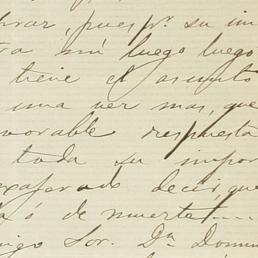 brar, pues pr. su im
tra mi luego luego
tiene el asunto
una vez mas, que
vorable respuesta
toda su impor
exajerado decir, que
da ó de muerte!....
migo Sor. Dn. Domin